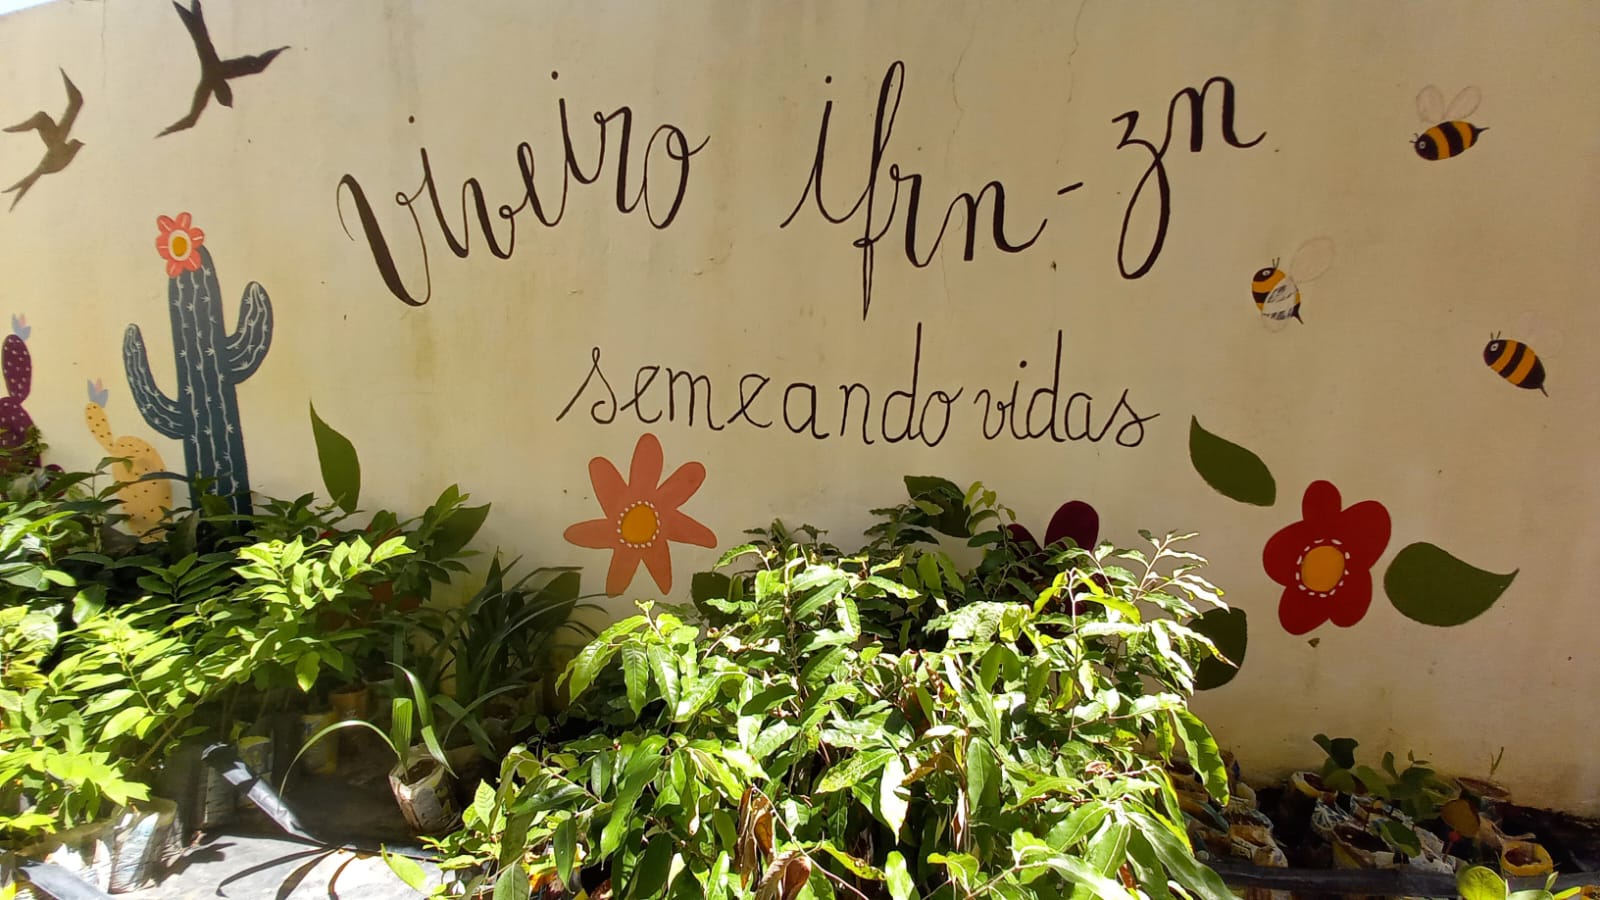 viveiro ifrn-zn
semeando vidas